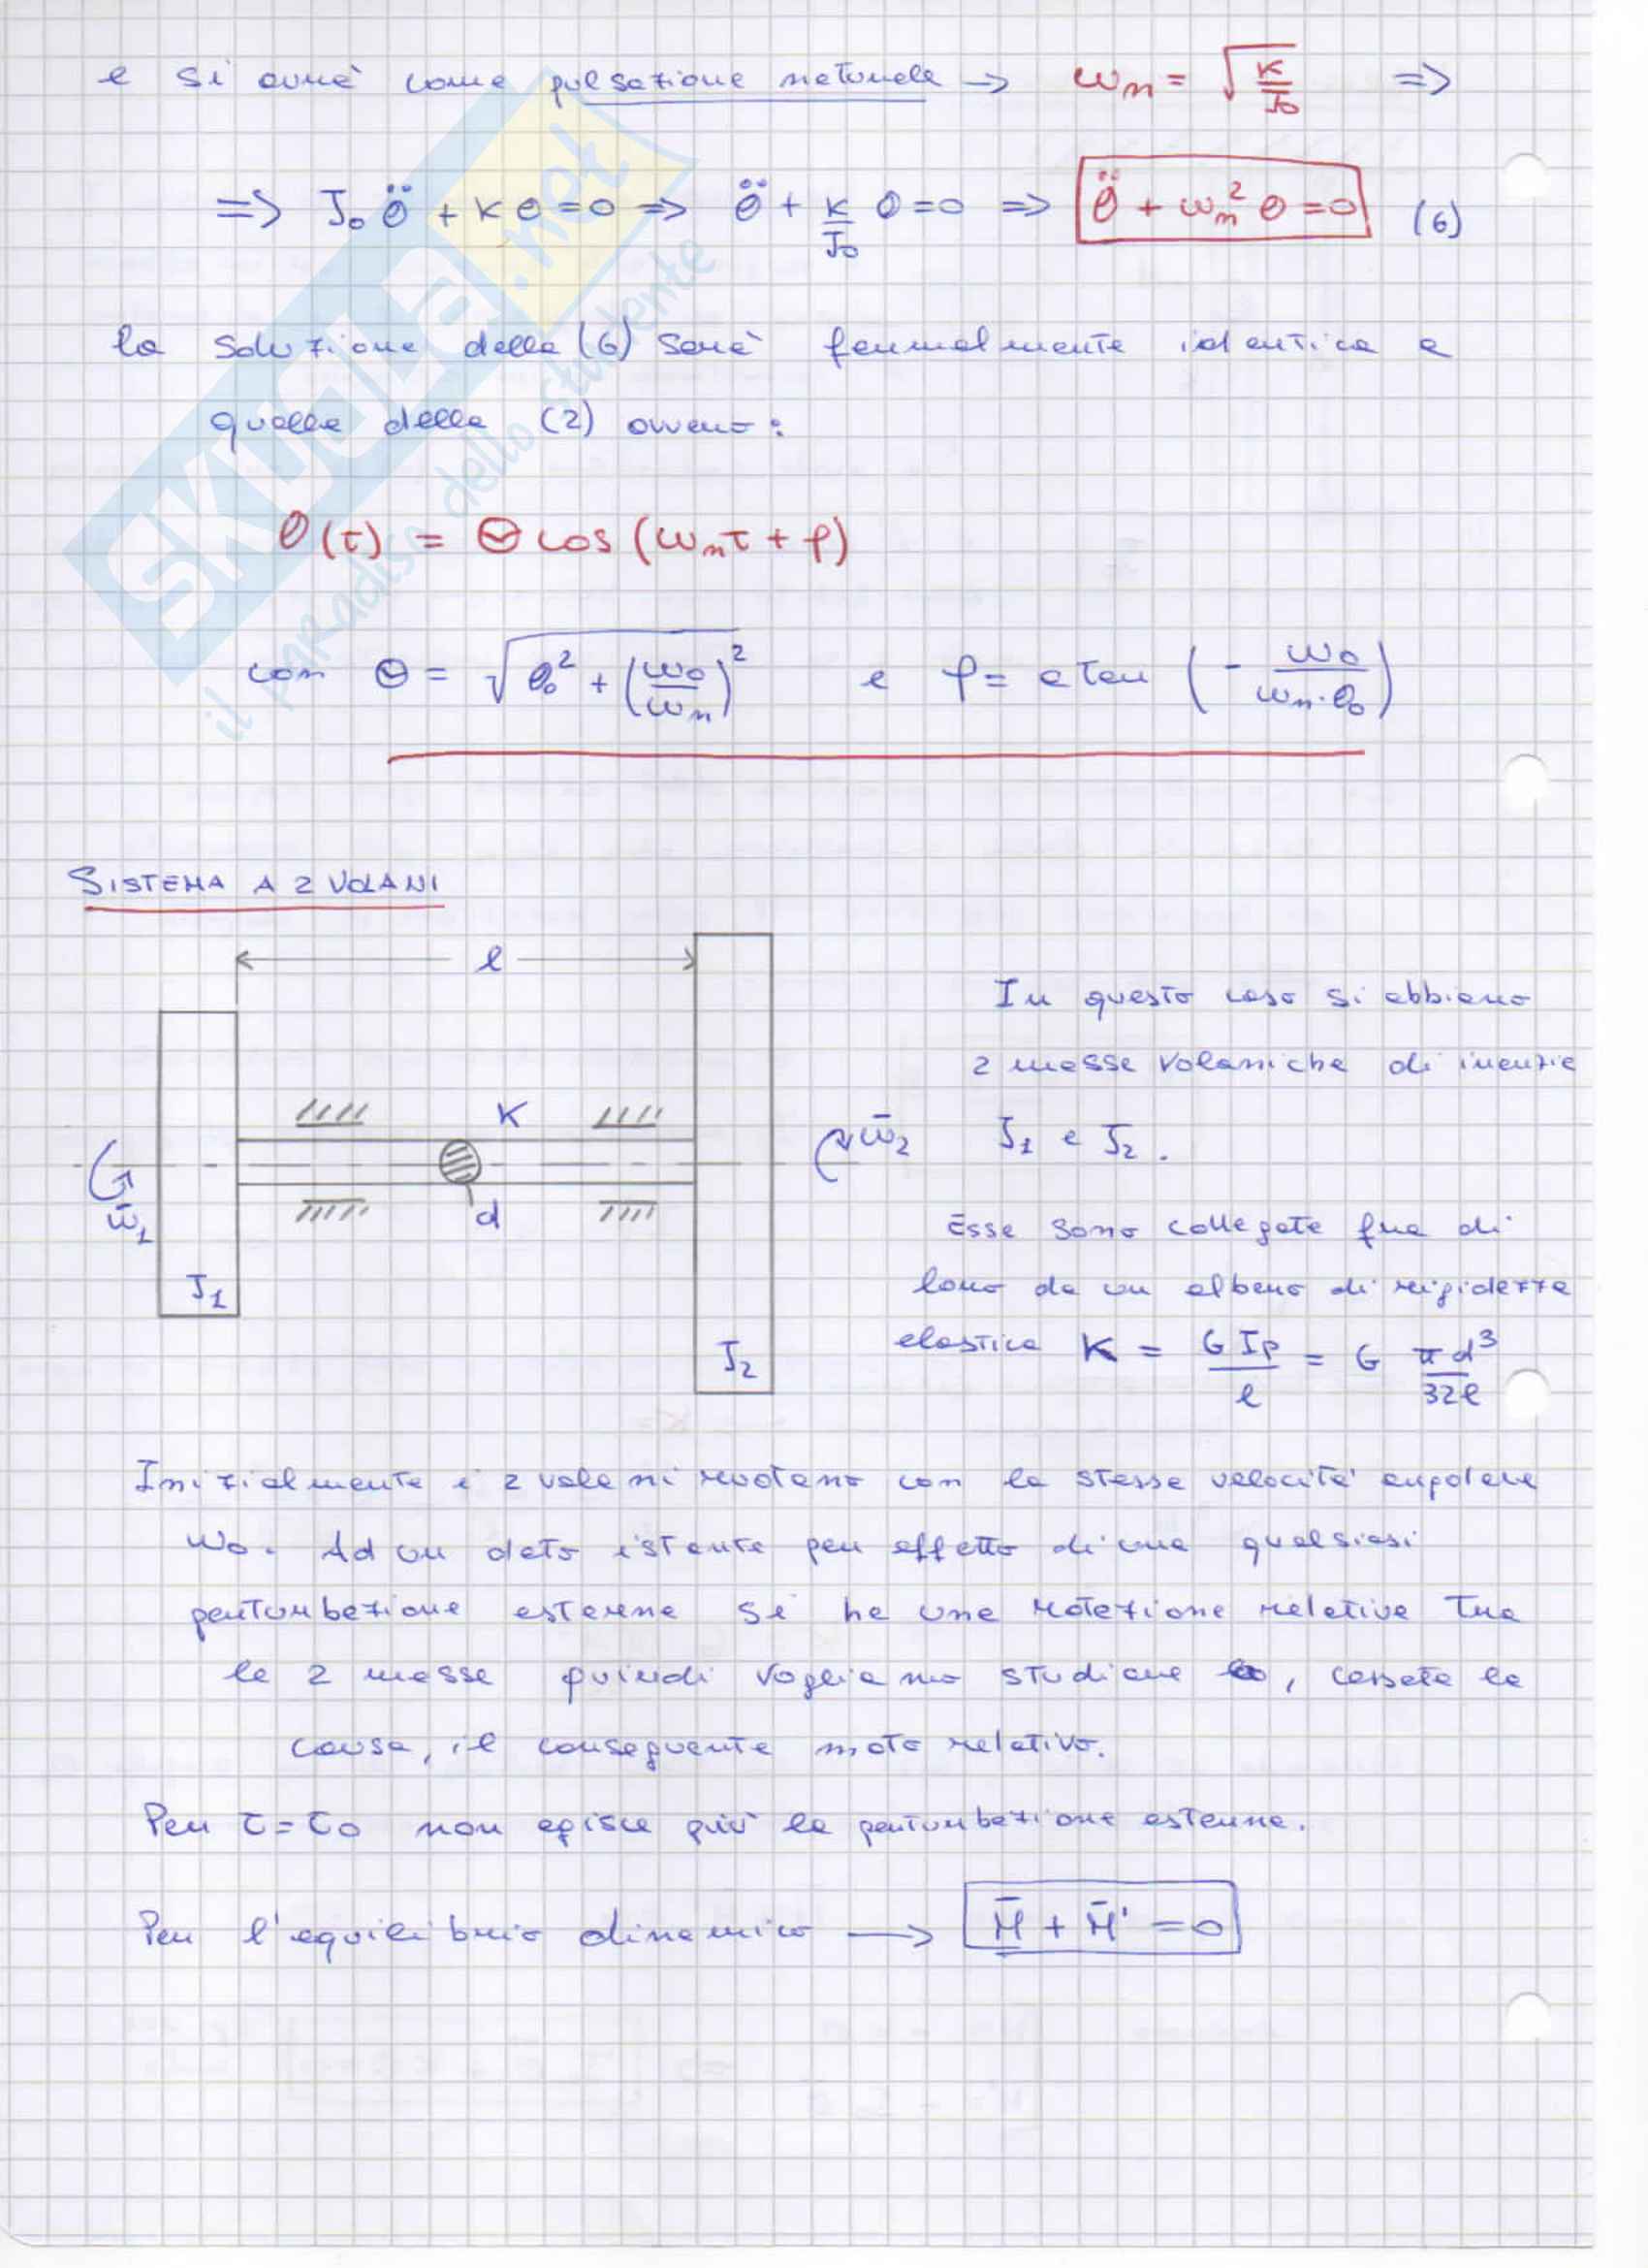 e si avrà come pulsazione naturale → ωn = √(K/J₀) =>
=> J₀ θ̈ + K θ = 0 => θ̈ + K/J₀ θ = 0 => θ̈ + ωn² θ = 0 (6)
la soluzione della (6) sarà formalmente identica a
quella della (2) ovvero:
θ(τ) = Θ cos (ωnτ + φ)
con Θ = √(θ₀² + (ω₀/ωn)²) e φ = atan (- ω₀/(ωn·θ₀))
SISTEMA A 2 VOLANI
l
In questo caso si abbiano
2 masse volaniche di inerzia
K
ω̄2 J1 e J2.
ω̄1
d
Esse sono collegate fra di
J1
loro da un albero di rigidezza
J2
elastica K = G Ip/l = G πd³/32l
Inizialmente i 2 volani ruotano con la stessa velocità angolare
ω₀. Ad un dato istante per effetto di una qualsiasi
perturbazione esterna si ha una rotazione relativa tra
le 2 masse quindi vogliamo studiare, cessata la
causa, il conseguente moto relativo.
Per τ=τ₀ non agisce più la perturbazione esterna.
Per l'equilibrio dinamico → M̄ + M̄' = 0
SKUOLA.net
il paradiso dello studente